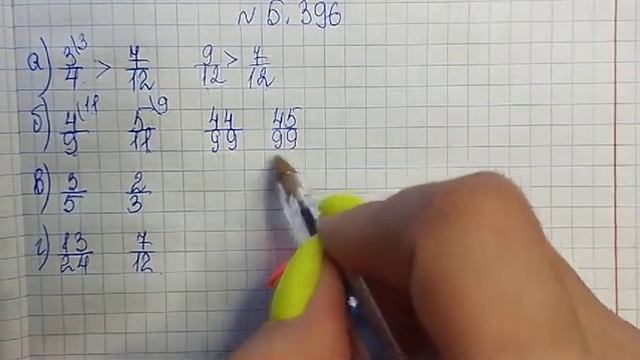 № 5.396
а) 3/4 \3 > 7/12 9/12 > 7/12
б) 4/9 \11 5/11 \9 44/99 45/99
в) 3/5 2/3
г) 13/24 7/12